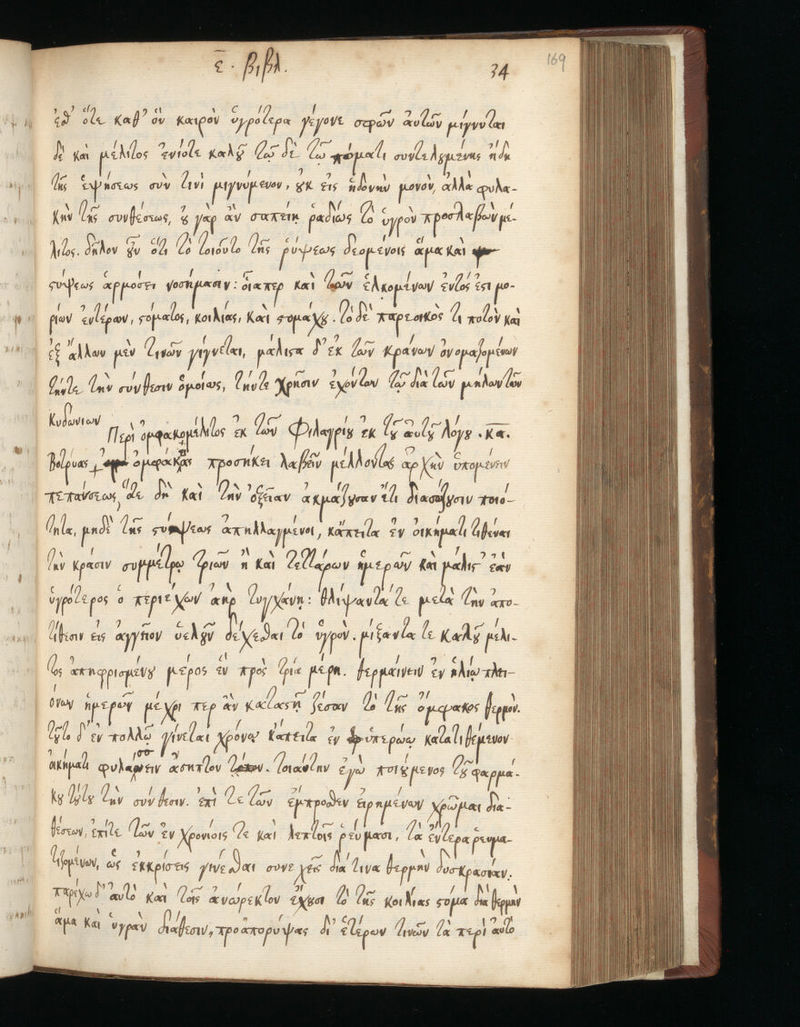 ε̄ · βιβλ.
34
169
ἐσθ' ὅτε καθ' ὃν καιρὸν ὑγρότερα γέγονε σφῶν αὐτῶν μίγνυται
δὲ καὶ μέλιτος ἐνίοτε καλοῦ τῷ δὲ τῷ πόματι συντελουμένης ἤδη
τῆς ἑψήσεως σὺν τινὶ μιγνύμενον, οὐκ εἰς ἡδονὴν μονὸν, ἀλλὰ φυλα-
κὴν τῆς συνθέσεως, οὐ γὰρ ἂν σαπείη ῥαδίως τὸ ὑγρὸν προσλαβὼν μέ-
λιτος. δῆλον οὖν ὅτι τὸ τοιοῦτο τῆς ῥύψεως δεομένοις ἅμα καὶ
στύψεως ἁρμόσει νοσήμασιν: οἷαπερ καὶ τῶν ἑλκομένων ἐντός ἐστι μο-
ρίων ἐντέρων, στόματος, κοιλίας, καὶ στομάχου. τὸ δὲ παρεοικὸς τι ποτὸν καὶ
ἐξ ἄλλων μὲν τινῶν γίγνεται, μάλιστα δ' ἐκ τῶν κράνων ὀνομαζομένων
τήντε τὴν σύνθεσιν ὁμοίως, τήντε χρῆσιν ἐχόντων τῷ διὰ τῶν μήλων τῶν
Κυδωνίων
Περὶ ὀμφακομέλιτος ἐκ τῶν Φιλαγρίου ἐκ τοῦ αὐτοῦ λόγου. κα.
Βότρυας ὀμφάκας προσήκει λαβεῖν μέλλοντας ἀρχὴν ὑπομένειν
πεπάνσεως, ἅτε δὴ καὶ τὴν ὀξεῖαν ἀκμάζουσαν ἔτι διασώζουσιν ποιό-
τητα, μηδὲ τῆς στύψεως ἀπηλλαγμένοι, κἄπειτα ἐν οἰκήματι τιθέναι
τὴν κράσιν συμμέτρῳ τριῶν ἢ καὶ τεττάρων ἡμερῶν καὶ μάλιστ' ἐὰν
ὑγρότερος ὁ περιέχων ἀὴρ τυγχάνῃ: θλίψαντά τε μετὰ τὴν ἀπο-
τίθεσιν εἰς ἀγγεῖον ὑελοῦν δέχεσθαι τὸ ὑγρὸν. μίξαντα τε καλοῦ μέλι-
τος ἀπηφρισμένου μέρος ἓν πρὸς τρία μέρη. θερμαίνειν ἐν ἡλίῳ πλει-
όνων ἡμερῶν μέχρι περ ἂν καταστῇ ζέσαν τὸ τῆς ὄμφακος θερμὸν.
τοῦτο δ' ἐν πολλῷ γίνεται χρόνῳ κἄπειτα ἐν ὑπερώῳ κατατιθέμενον
οἰκήματι φυλάσσειν ἄσηπτον. τοιαύτην ἐγὼ ποιούμενος τοῦ φαρμά-
κου τούτου τὴν σύνθεσιν. ἐπὶ τε τῶν ἔμπροσθεν εἰρημένων χρῶμαι δια-
θέσεων, ἐπίτε τῶν ἐν χρονίοις τε καὶ λεπτοῖς ῥεύμασι, τὰ ἔντερα ῥευμα-
τιζομένων, ὡς ἐκκρίσεις γίνεσθαι συνεχεῖς διά τινα θερμὴν δυσκρασίαν.
παρέχω δ' αὐτὸ καὶ τοῖς ἀνώρεκτον ἔχουσι τὸ τῆς κοιλίας στόμα διὰ θερμὴν
ἅμα καὶ ὑγρὰν διάθεσιν, προαπορύψας δι' ἑτέρων τινῶν τὰ περὶ αὐτὸ